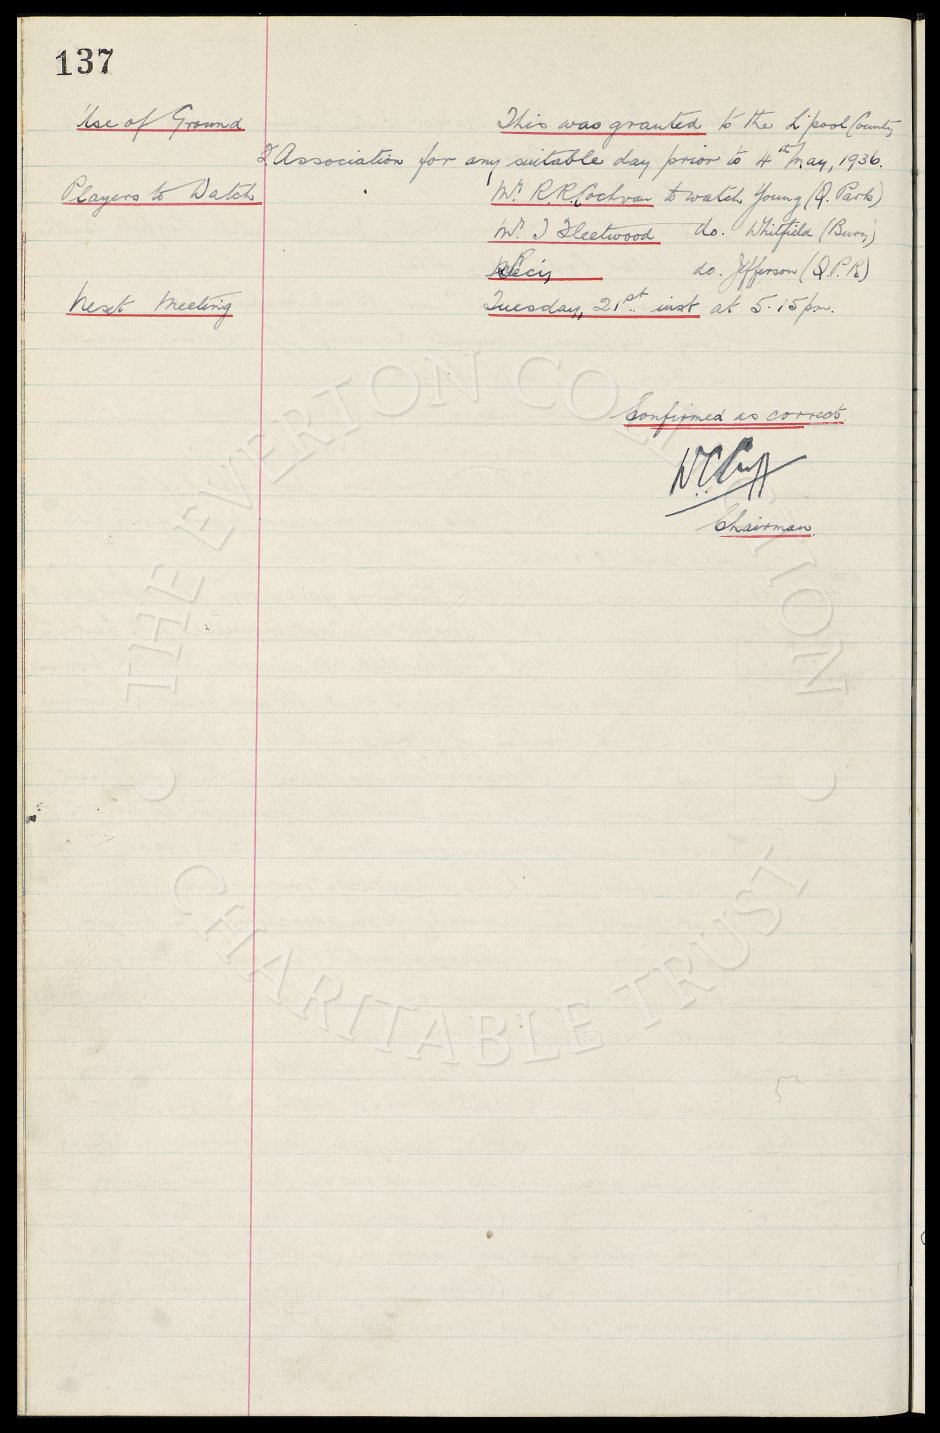 137
Use of Ground This was granted to the L'pool County
F. Association for any suitable day prior to 4th May, 1936.
Players to Watch Mr R.R. Cochran to watch Young (Q. Park)
Mr J Fleetwood do. Whitfield (Bury)
Secy do. Jefferson (Q.P.R.)
Next Meeting Tuesday, 21st inst at 5.15 pm.
Confirmed as correct
W.C. Cuff
Chairman
THE EVERTON COLLECTION
CHARITABLE TRUST